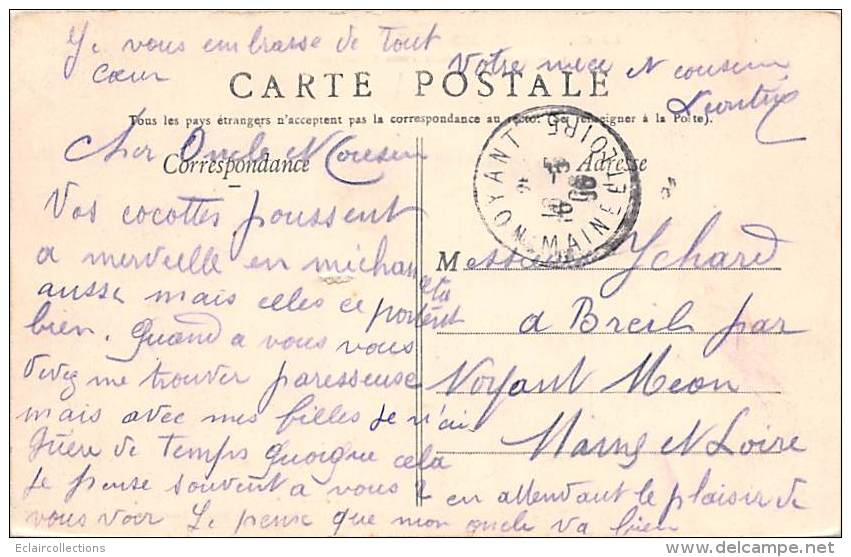 Je vous embrasse de tout
cœur
Votre niece et cousine
CARTE POSTALE
Tous les pays étrangers n'acceptent pas la correspondance au recto. (Se renseigner à la Poste).
Cher Oncle et Cousin
Correspondance
Adresse
NOYANT
MAINE ET LOIRE
Vos cocottes poussent
a merveille en méchanceté
aussi mais elles ce portent
bien. Quand a vous vous
devez me trouver paresseuse
mais avec mes filles je n'ai
guère de temps quoique cela
Je pense souvent a vous 2 en attendant le plaisir de
vous voir Je pense que mon oncle va bien
Messieurs Ychard
a Breil par
Noyant Meon
Maine et Loire
Eclaircollections
delcampe.net